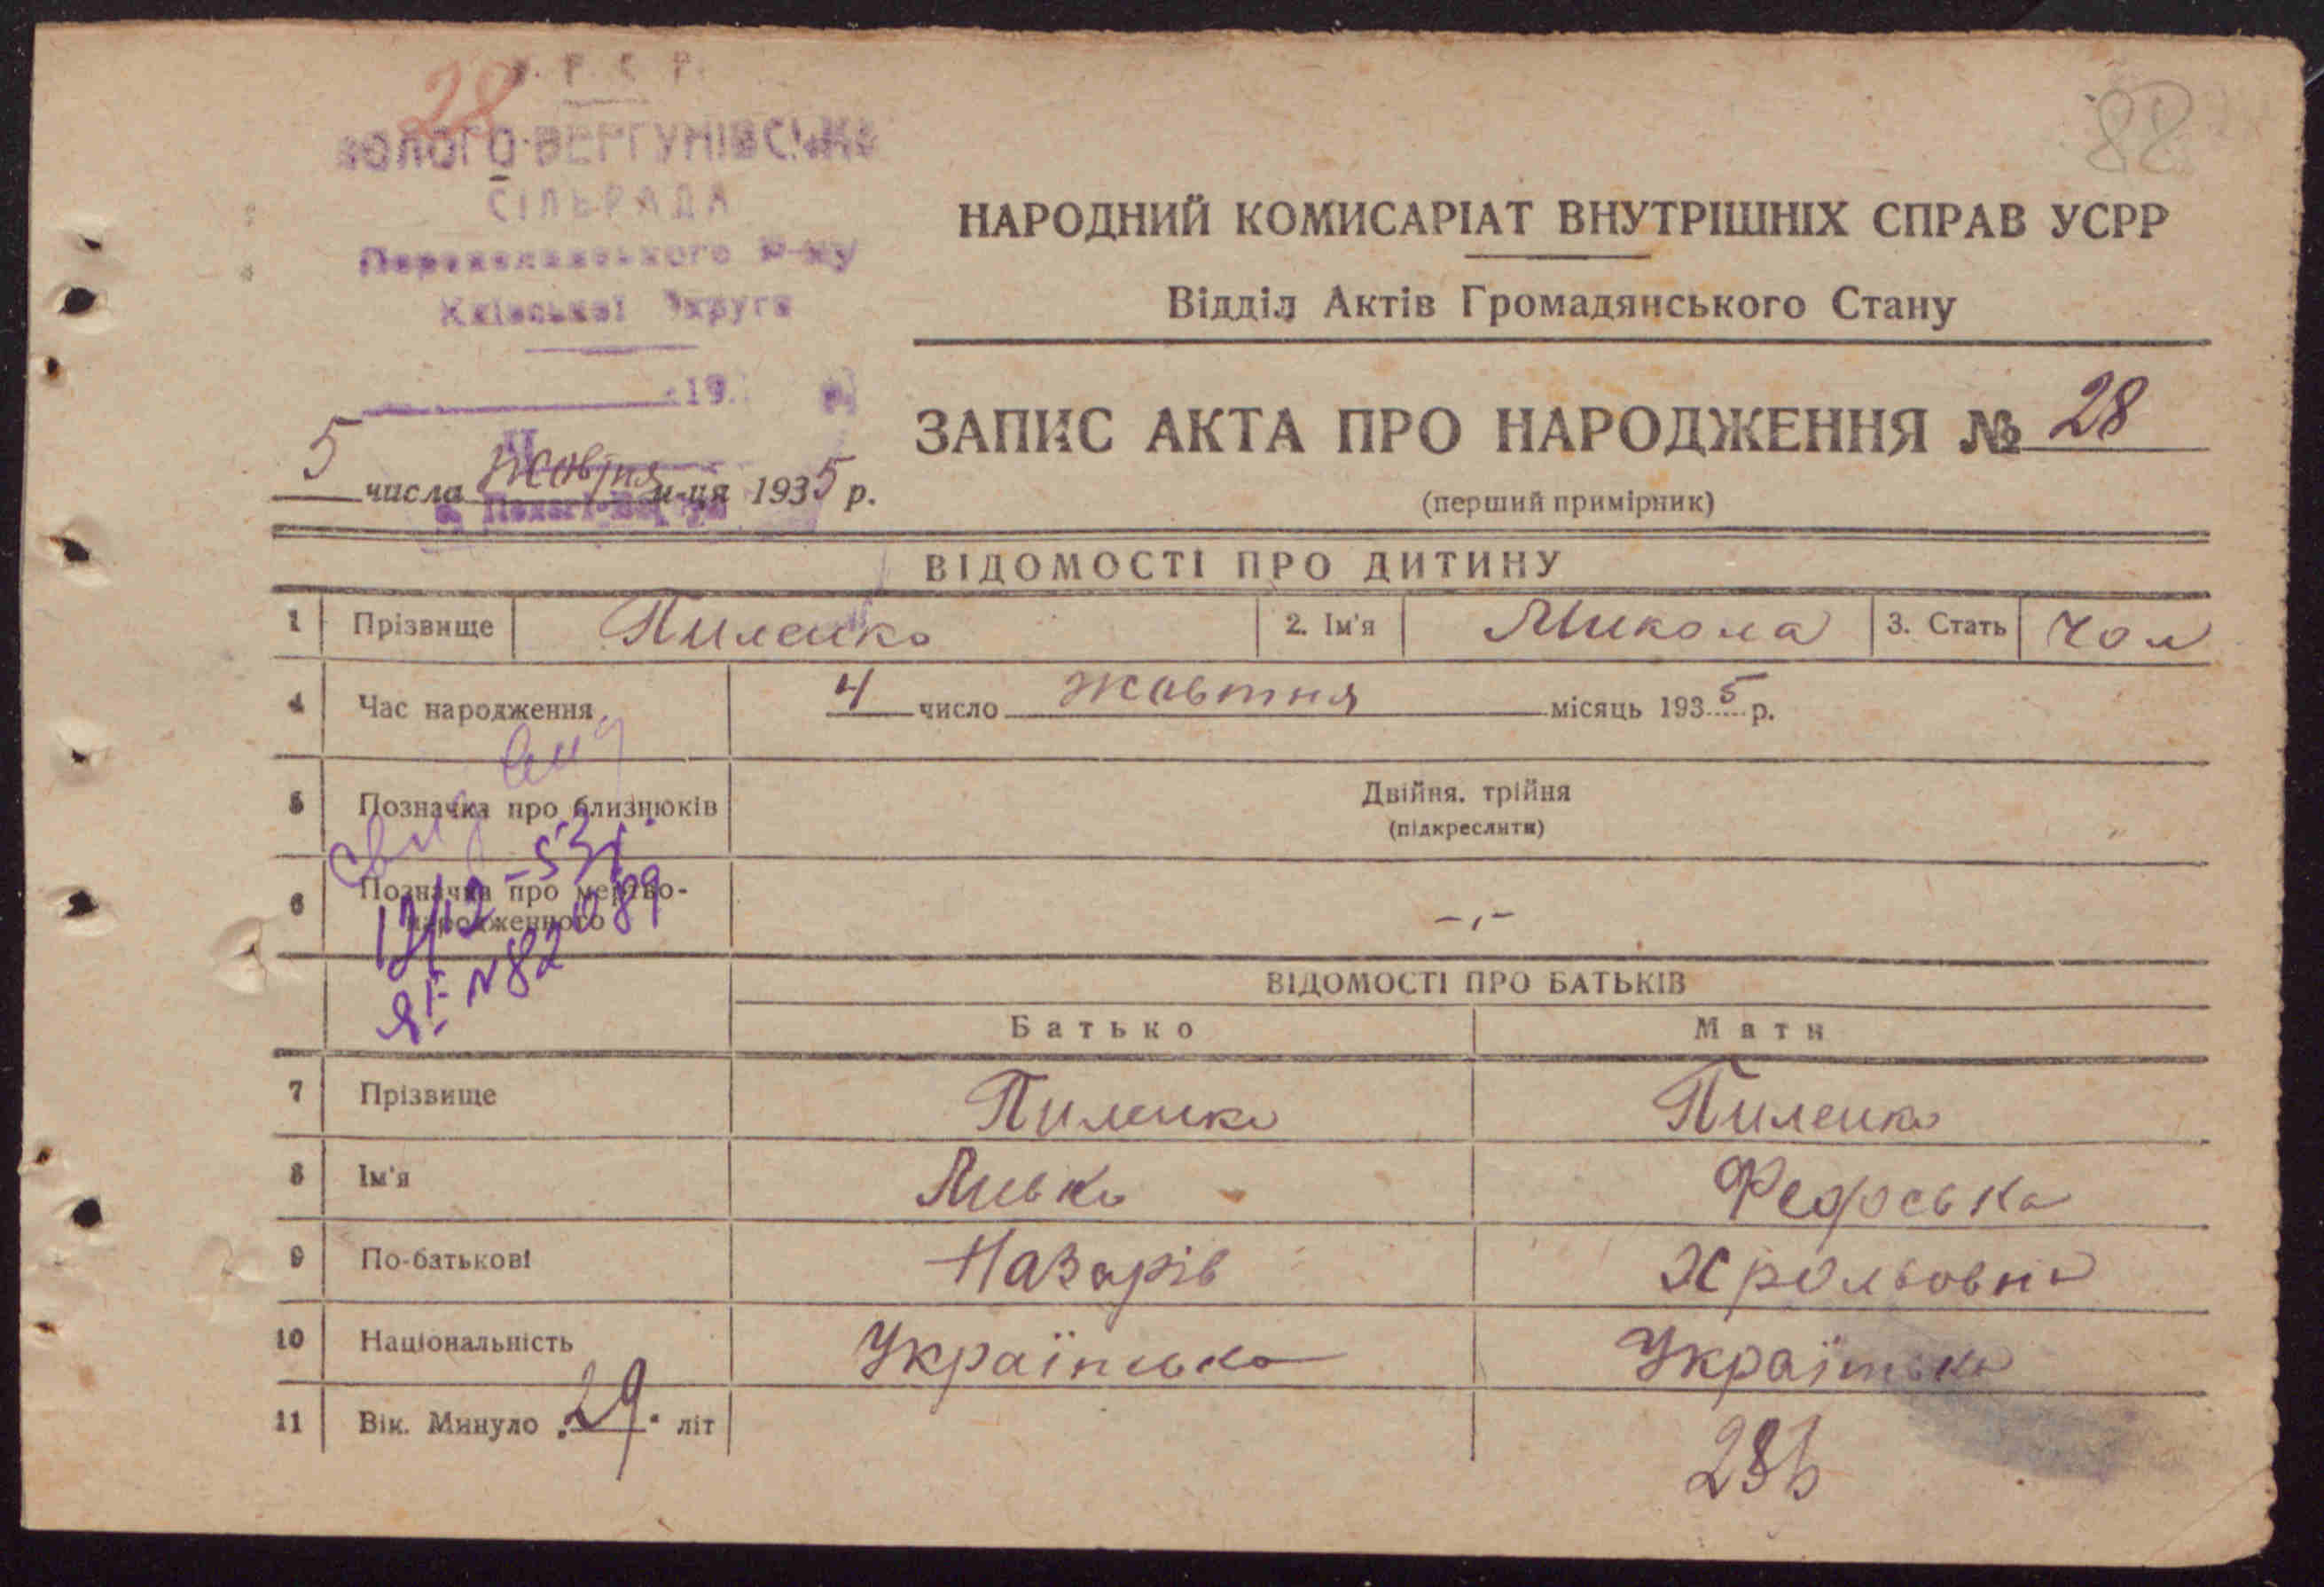 У. Р. С. Р.
28
88
ПОЛОГО-ВЕРГУНІВСЬКА
СІЛЬРАДА
Переяславського Р-ну
Київської Округи
19 р.
НАРОДНИЙ КОМИСАРІАТ ВНУТРІШНІХ СПРАВ УСРР
Відділ Актів Громадянського Стану
ЗАПИС АКТА ПРО НАРОДЖЕННЯ № 28
(перший примірник)
5 числа жовтня м-ця 1935 р.
ВІДОМОСТІ ПРО ДИТИНУ
1 Прізвище Пиленко 2. Ім'я Микола 3. Стать чол
4 Час народження 4 число жовтня місяць 1935 р.
5 Позначка про близнюків Двійня, трійня
(підкреслити)
6 Позначка про мертво-
народженного -,-
ВІДОМОСТІ ПРО БАТЬКІВ
Батько Мати
7 Прізвище Пиленко Пиленко
8 Ім'я Левко Федоська
9 По-батькові Назарів Хрольовна
10 Національність Українська Українська
11 Вік. Минуло „29" літ